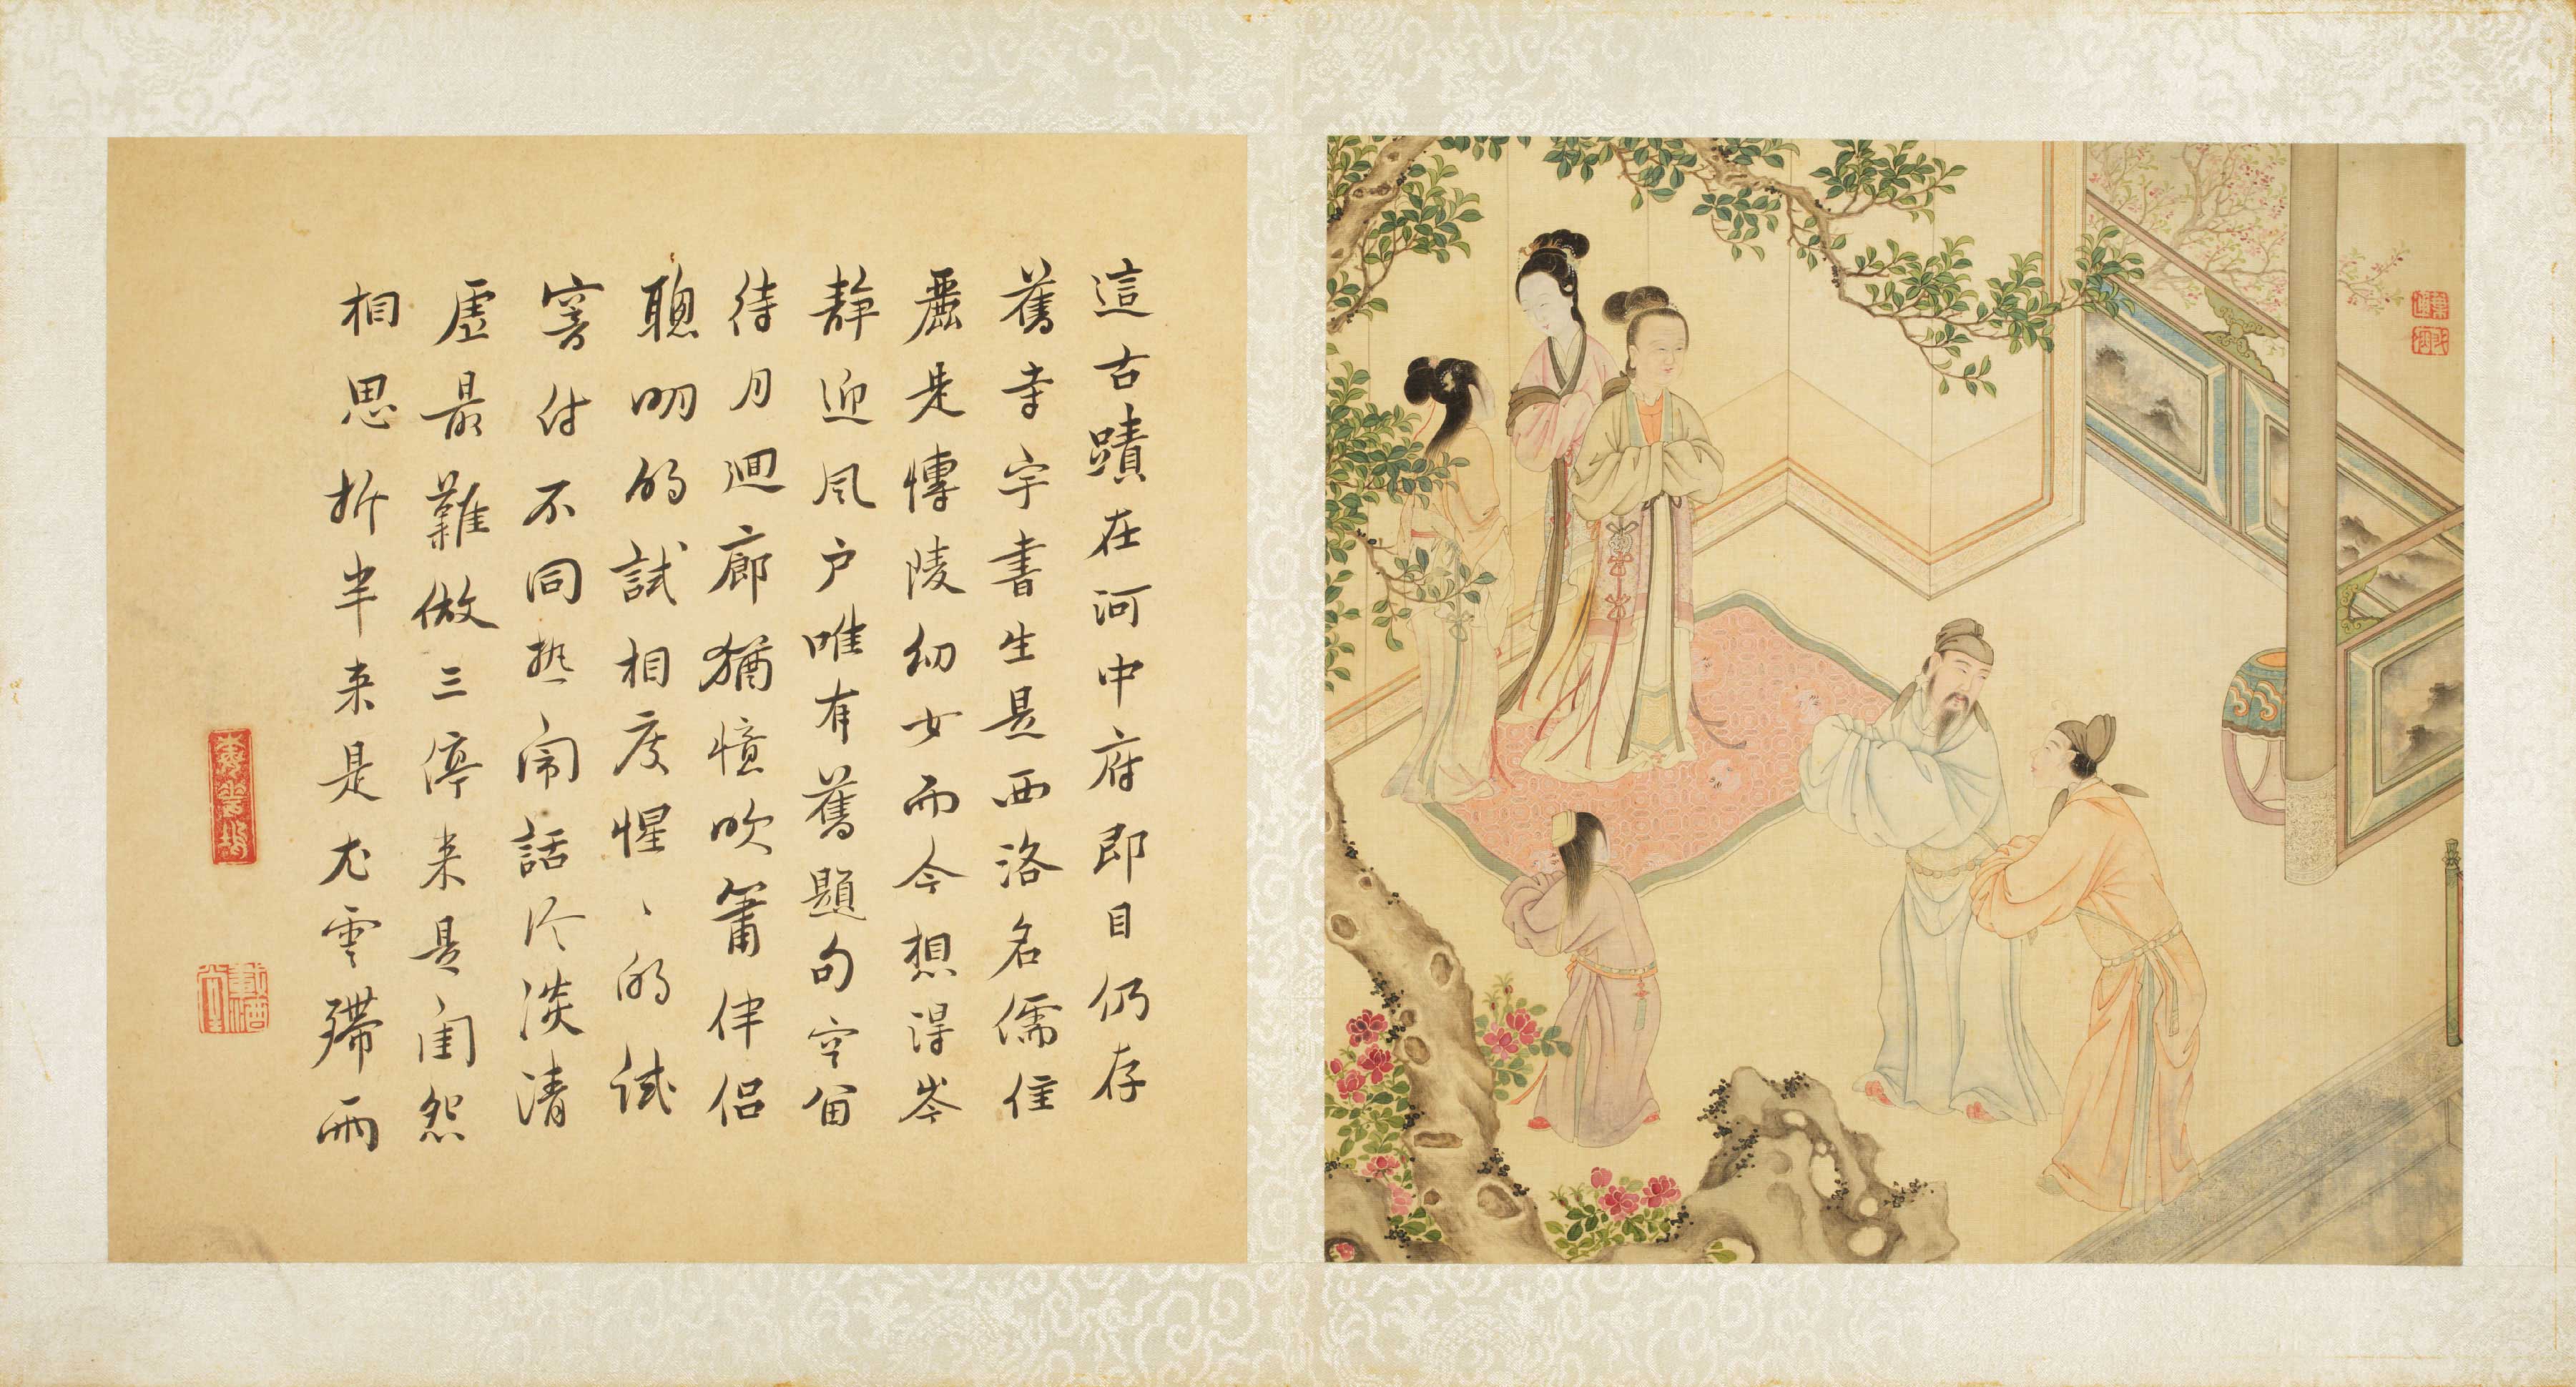 這古蹟在河中府即目仍存
舊寺宇書生是西洛名儒佳
麗是博陵幼女而今想得岑
靜迎風户唯有舊題句空留
待月廻廊猶憶吹簫伴侶
聰明的試相度惺、的試
窨付不同熱鬧話冷淡清
虛最難做三停来是閨怨
相思折半来是尤雲殢雨